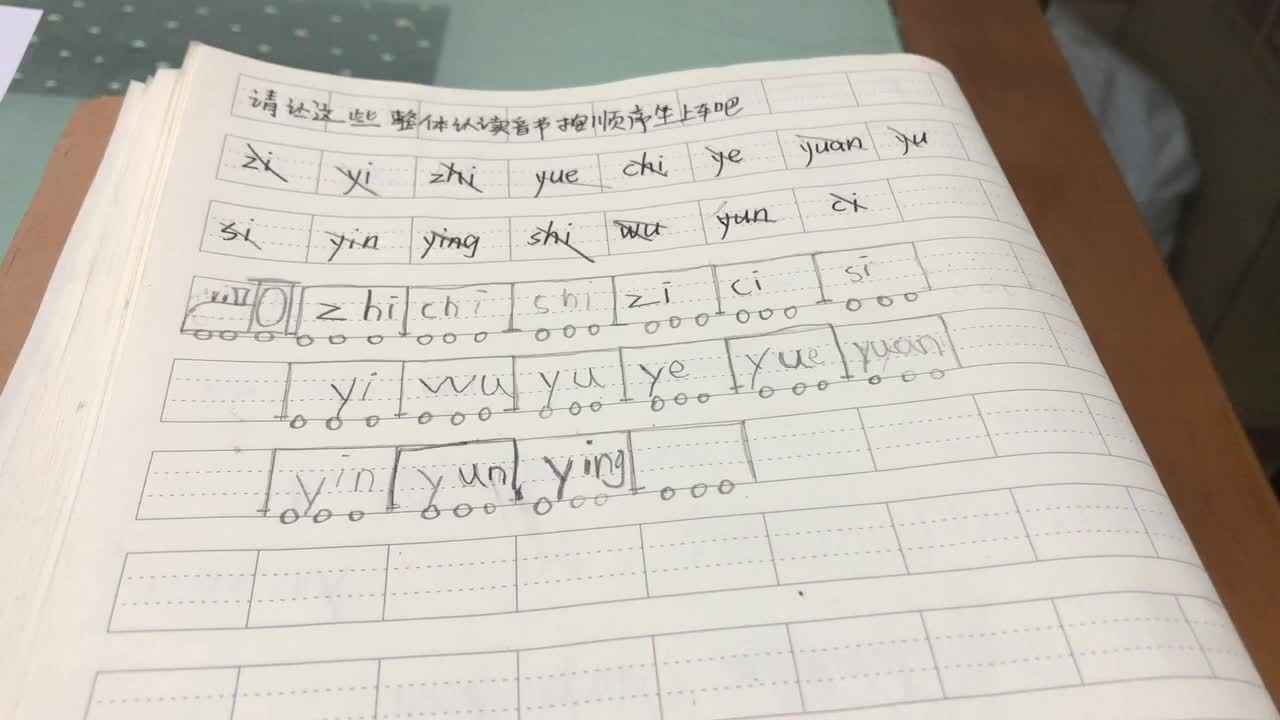 请让这些整体认读音节按顺序坐上车吧
zi yi zhi yue chi ye yuan yu
si yin ying shi wu yun ci
zhi chi shi zi ci si
yi wu yu ye yue yuan
yin yun ying